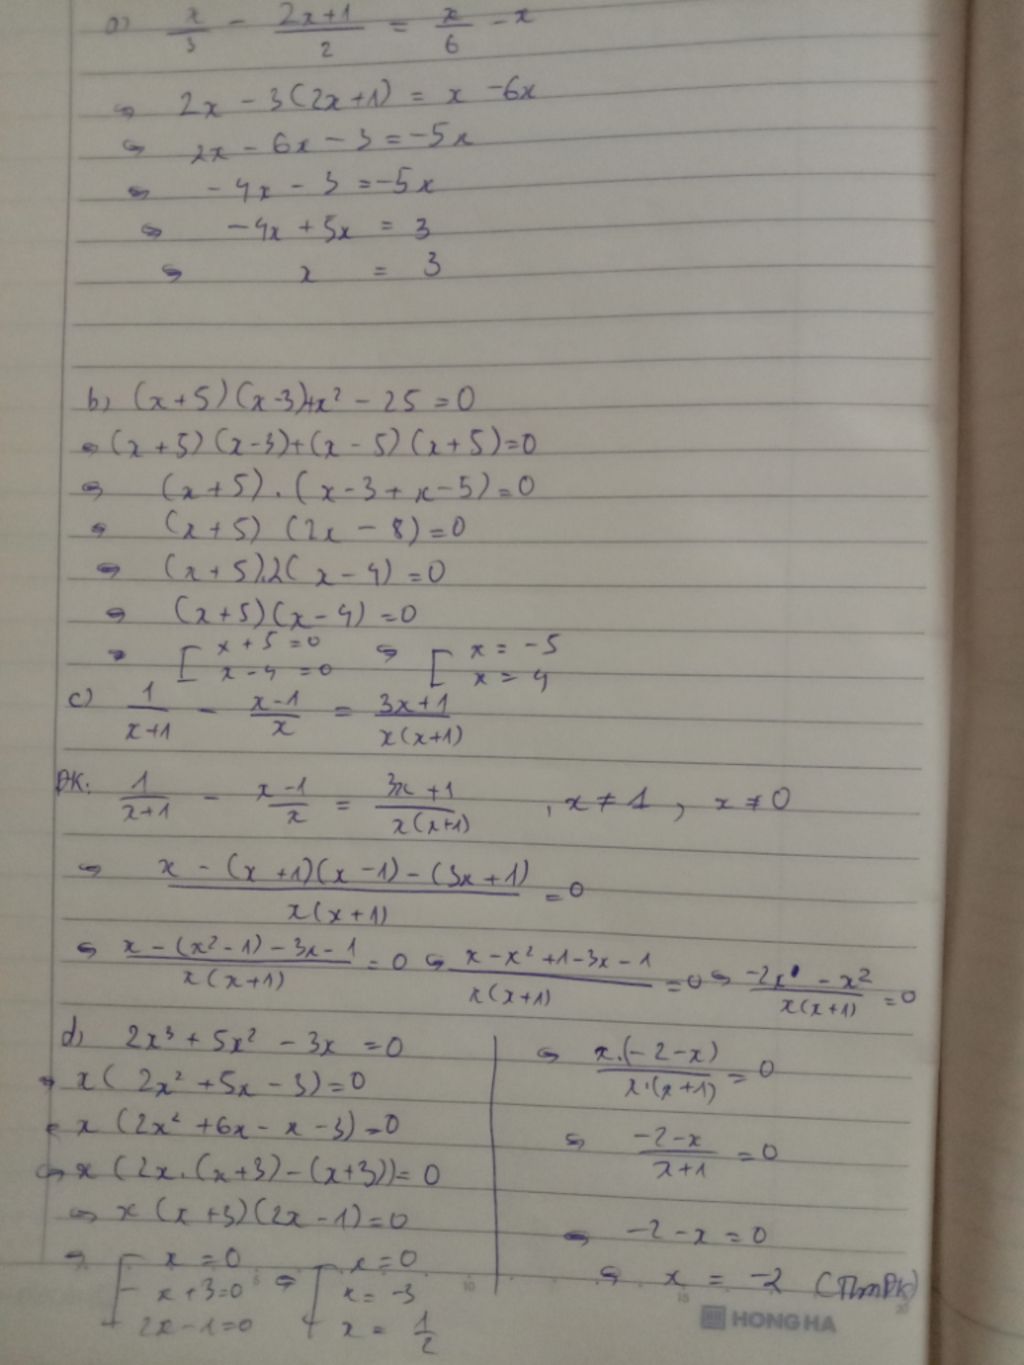 a) x/3 - (2x+1)/2 = x/6 - x
⇔ 2x - 3(2x+1) = x - 6x
⇔ 2x - 6x - 3 = -5x
⇔ -4x - 3 = -5x
⇔ -4x + 5x = 3
⇔ x = 3
b) (x+5)(x-3)+x² - 25 = 0
⇔ (x+5)(x-3)+(x-5)(x+5)=0
⇔ (x+5).(x-3+x-5)=0
⇔ (x+5)(2x-8)=0
⇔ (x+5).2(x-4)=0
⇔ (x+5)(x-4)=0
⇔ [ x+5=0 ⇔ [ x = -5
x-4=0 x = 4
c) 1/(x+1) - (x-1)/x = (3x+1)/(x(x+1))
ĐK: 1/(x+1) - (x-1)/x = (3x+1)/(x(x+1)) , x ≠ 1 , x ≠ 0
⇔ (x - (x+1)(x-1) - (3x+1))/(x(x+1)) = 0
⇔ (x - (x²-1) - 3x - 1)/(x(x+1)) = 0 ⇔ (x - x² + 1 - 3x - 1)/(x(x+1)) = 0 ⇔ (-2x - x²)/(x(x+1)) = 0
⇔ (x.(-2-x))/(x.(x+1)) = 0
⇔ (-2-x)/(x+1) = 0
⇔ -2-x = 0
⇔ x = -2 (TmĐK)
d) 2x³ + 5x² - 3x = 0
⇔ x(2x² + 5x - 3)=0
⇔ x(2x² + 6x - x - 3)=0
⇔ x(2x.(x+3)-(x+3))=0
⇔ x(x+3)(2x-1)=0
⇔ [ x=0 ⇔ [ x=0
x+3=0 x=-3
2x-1=0 x = 1/2
5 10 15 20
HONG HA